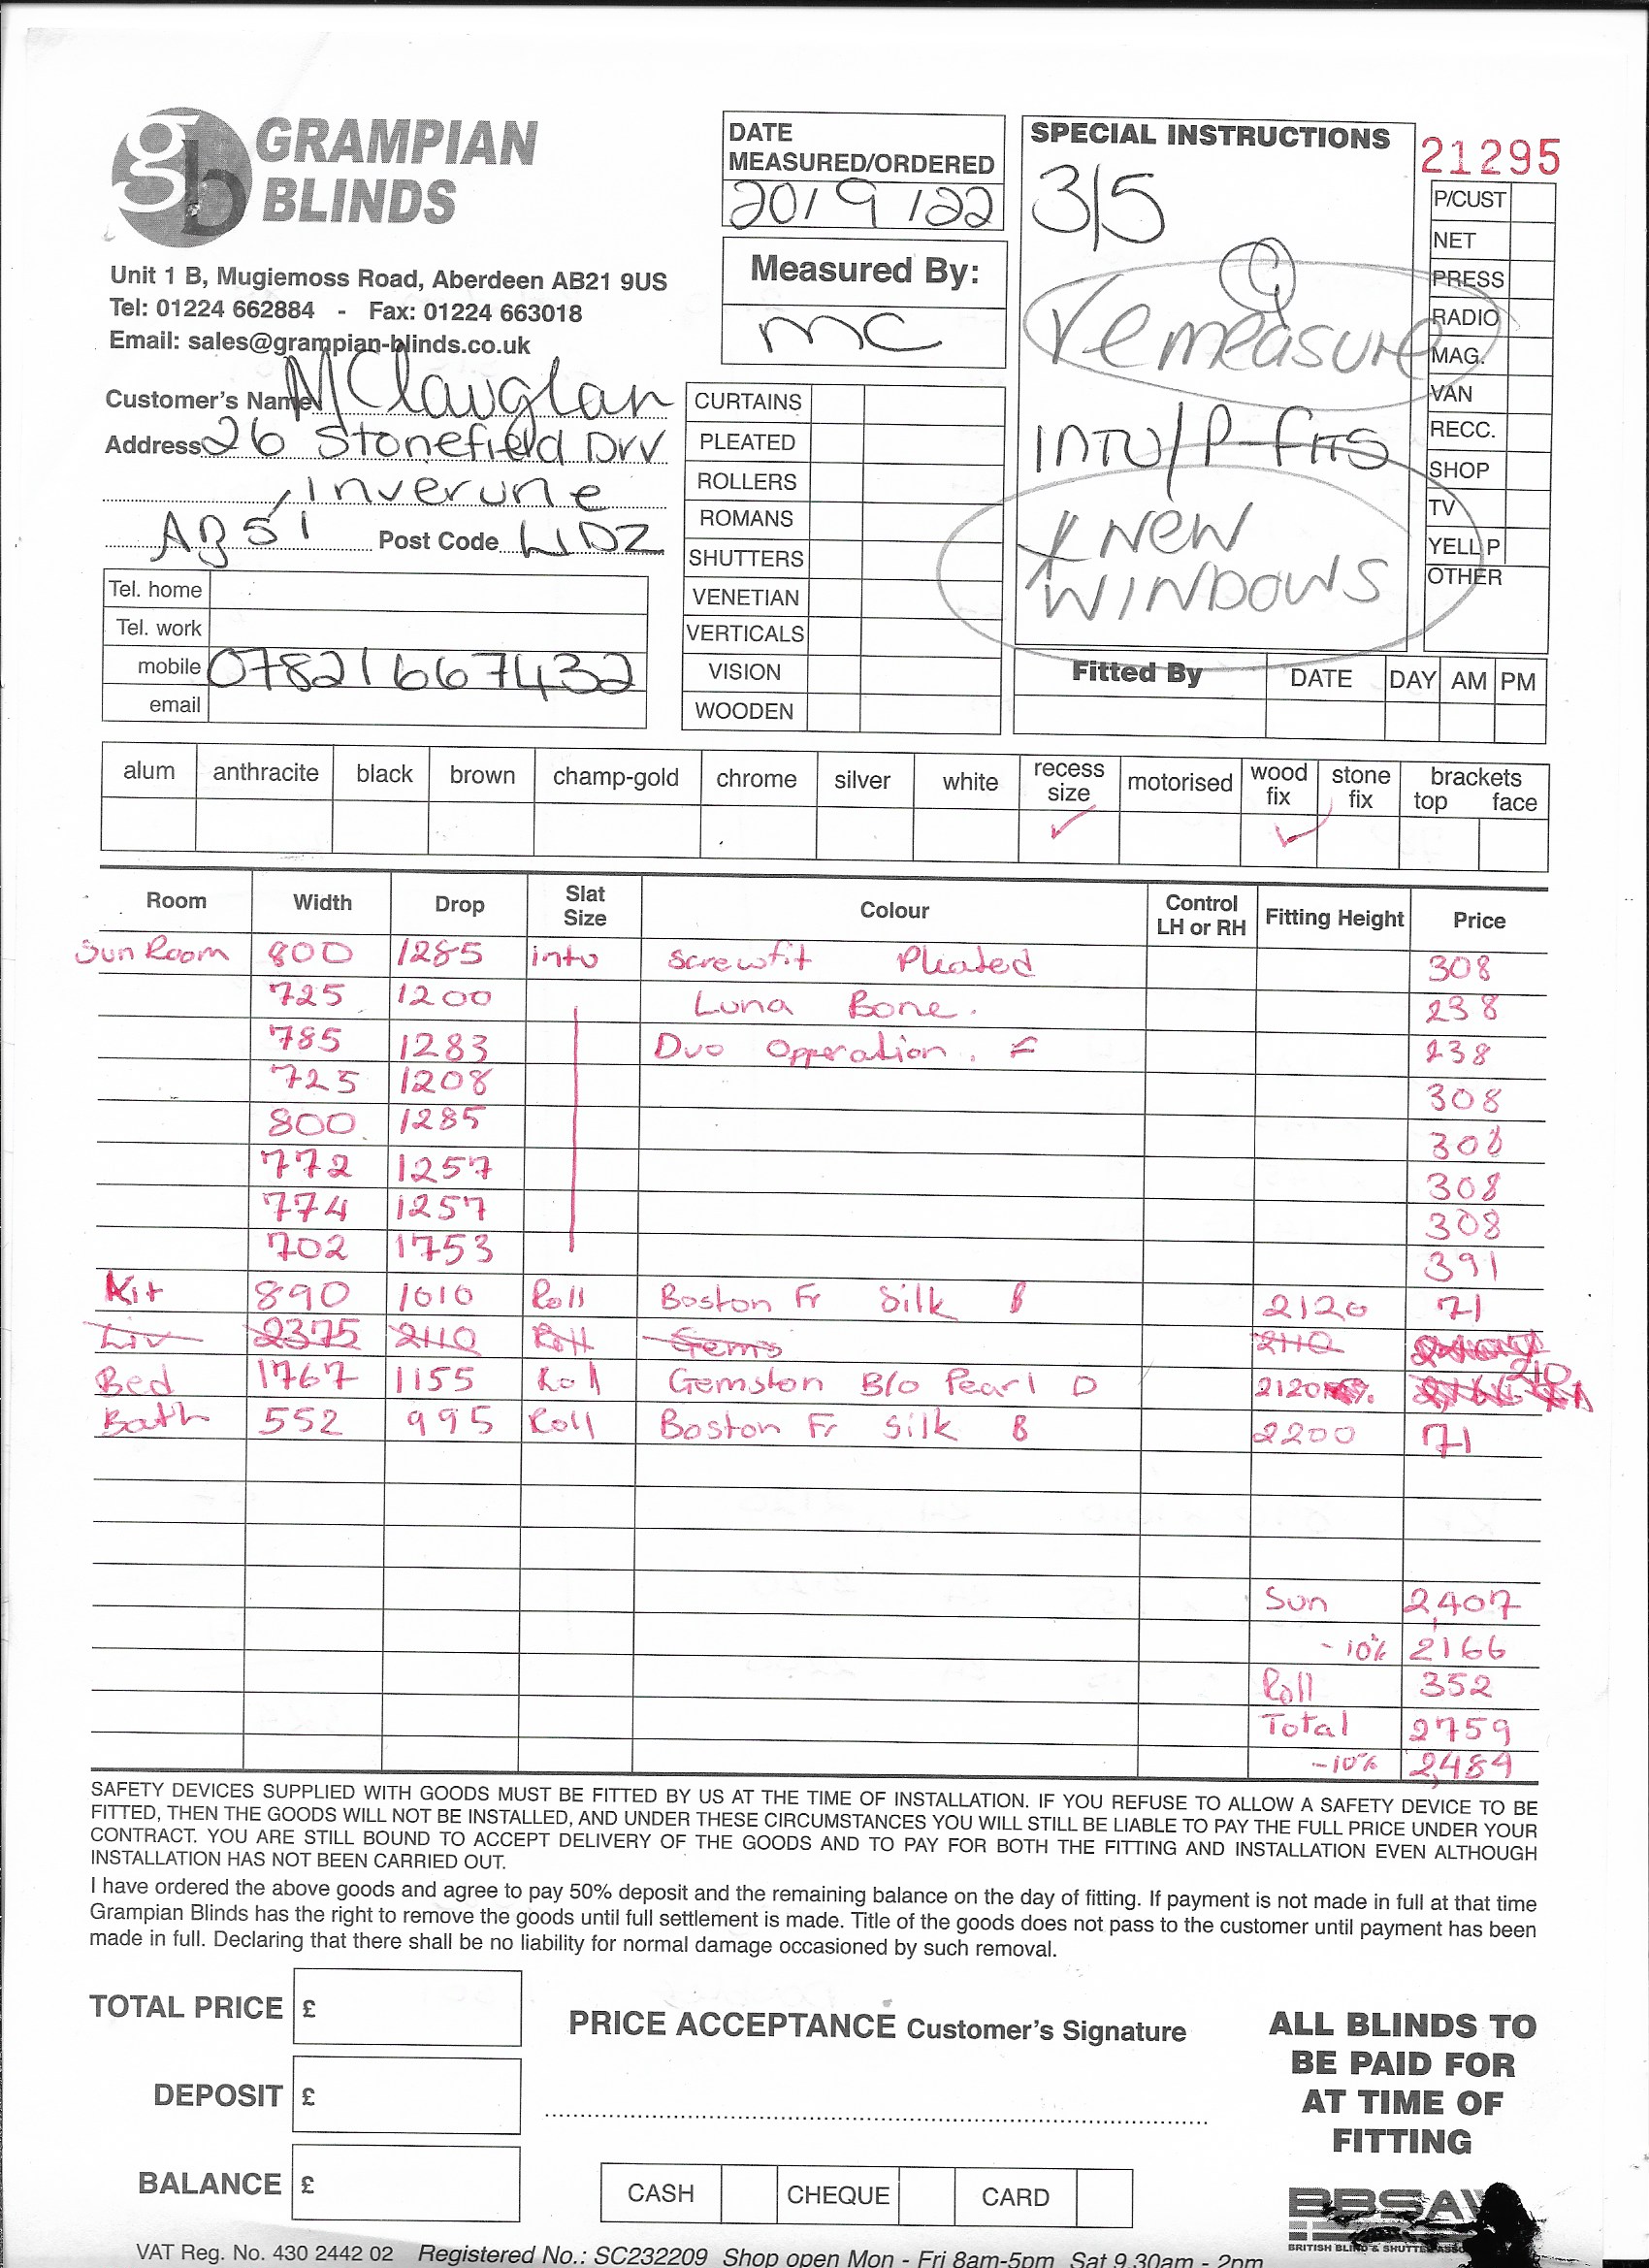 GRAMPIAN
BLINDS
Unit 1 B, Mugiemoss Road, Aberdeen AB21 9US
Tel: 01224 662884 - Fax: 01224 663018
Email: sales@grampian-blinds.co.uk
Customer's Name McLauglan
Address 26 Stonefield Drv
, Inverurie
AB51 Post Code 4DZ
Tel. home
Tel. work
mobile 07821667432
email
DATE
MEASURED/ORDERED
20/9/22
Measured By:
MC
CURTAINS
PLEATED
ROLLERS
ROMANS
SHUTTERS
VENETIAN
VERTICALS
VISION
WOODEN
SPECIAL INSTRUCTIONS
3/5
Q
remeasure
INTU/P-FITS
NEW
WINDOWS
21295
P/CUST
NET
PRESS
RADIO
MAG.
VAN
RECC.
SHOP
TV
YELL P
OTHER
Fitted By DATE DAY AM PM
alum anthracite black brown champ-gold chrome silver white recess size motorised wood fix stone fix brackets top face
✓ ✓
Room Width Drop Slat Size Colour Control LH or RH Fitting Height Price
Sun Room 800 1285 intu Screwfit Pleated 308
725 1200 Luna Bone. 238
785 1283 Duo Opperation. 238
725 1208 308
800 1285 308
772 1257 308
774 1257 308
702 1753 391
Kit 890 1010 Roll Boston Fr Silk B 2120 71
Liv 2375 2110 Roll Gems 2110
Bed 1767 1155 Roll Gemston B/o Pearl D 2120 210
Bath 552 995 Roll Boston Fr Silk B 2200 71
Sun 2,407
-10% 2166
Roll 352
Total 2759
-10% 2,484
SAFETY DEVICES SUPPLIED WITH GOODS MUST BE FITTED BY US AT THE TIME OF INSTALLATION. IF YOU REFUSE TO ALLOW A SAFETY DEVICE TO BE
FITTED, THEN THE GOODS WILL NOT BE INSTALLED, AND UNDER THESE CIRCUMSTANCES YOU WILL STILL BE LIABLE TO PAY THE FULL PRICE UNDER YOUR
CONTRACT. YOU ARE STILL BOUND TO ACCEPT DELIVERY OF THE GOODS AND TO PAY FOR BOTH THE FITTING AND INSTALLATION EVEN ALTHOUGH
INSTALLATION HAS NOT BEEN CARRIED OUT.
I have ordered the above goods and agree to pay 50% deposit and the remaining balance on the day of fitting. If payment is not made in full at that time
Grampian Blinds has the right to remove the goods until full settlement is made. Title of the goods does not pass to the customer until payment has been
made in full. Declaring that there shall be no liability for normal damage occasioned by such removal.
TOTAL PRICE £
DEPOSIT £
BALANCE £
PRICE ACCEPTANCE Customer's Signature
CASH CHEQUE CARD
ALL BLINDS TO
BE PAID FOR
AT TIME OF
FITTING
BBSA
BRITISH BLIND & SHUTTER ASSOC
VAT Reg. No. 430 2442 02 Registered No.: SC232209 Shop open Mon - Fri 8am-5pm Sat 9.30am - 2pm